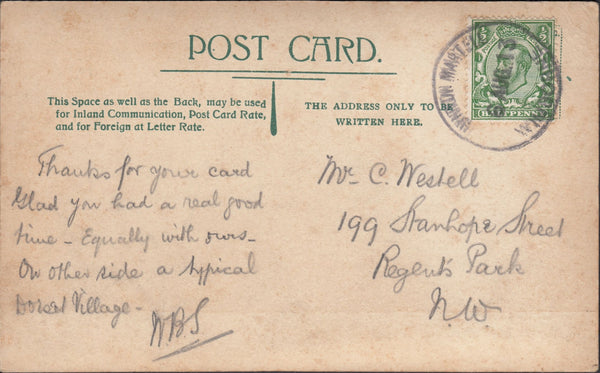 POST CARD.
This Space as well as the Back, may be used
for Inland Communication, Post Card Rate,
and for Foreign at Letter Rate.
THE ADDRESS ONLY TO BE
WRITTEN HERE.
Thanks for your card
Glad you had a real good
time - Equally with ours -
On other side a typical
Dorset Village -
WBS
Mr C. Westell
199 Stanhope Street
Regent's Park
N.W
½ ½
HALFPENNY